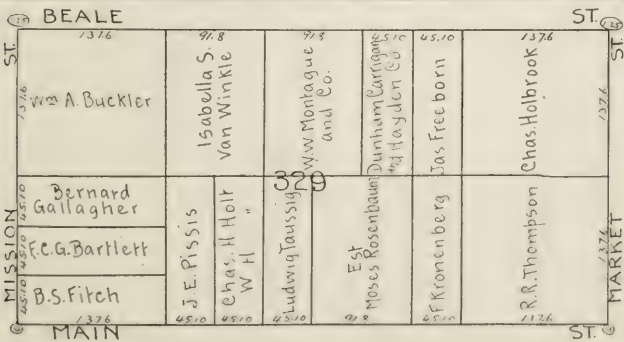 BEALE ST.
137.6 91.8 91.8 45.10 45.10 137.6
ST.
MISSION
137.6
Wm A. Buckler
Isabella S.
Van Winkle
W.W. Montague
and Co.
Dunham Carrigan
nd Hayden Co
Jas Freeborn
Chas. Holbrook
137.6
ST.
MARKET
329
45.10
Bernard
Gallagher
45.10
F.C.G. Bartlett
45.10
B.S. Fitch
J.E. Pissis
Chas. H Holt
W H "
Ludwig Taussig
Est
Moses Rosenbaum
F Kronenberg
R.R. Thompson
137.6
137.6 45.10 45.10 45.10 91.8 45.10 137.6
MAIN ST.